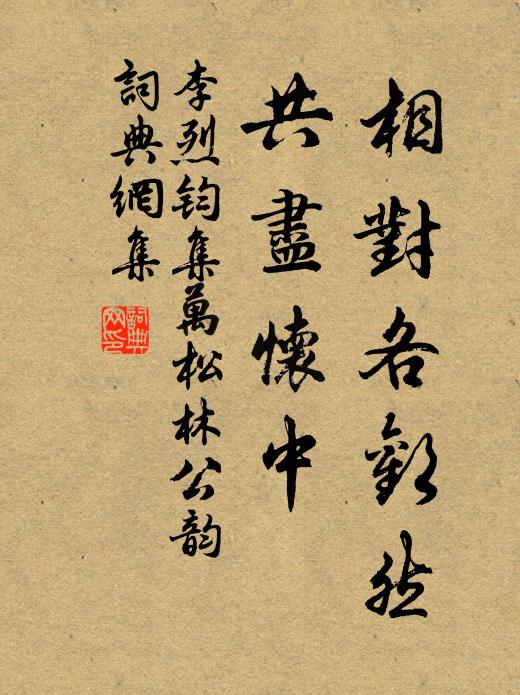 相對各歡然
共盡懷中
李烈鈞集萬松林公韻
詞典網集
詞典網印